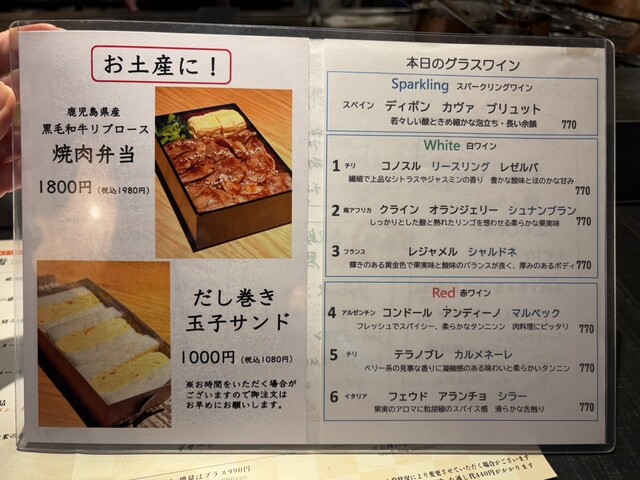 お土産に！
鹿児島県産
黒毛和牛リブロース
焼肉弁当
1800円（税込1980円）
だし巻き
玉子サンド
1000円（税込1080円）
※お時間をいただく場合が
ございますので御注文は
お早めにお願いします。
本日のグラスワイン
Sparkling スパークリングワイン
スペイン ディボン カヴァ ブリュット
若々しい酸ときめ細かな泡立ち・長い余韻 770
White 白ワイン
1 チリ コノスル リースリング レゼルバ
繊細で上品なシトラスやジャスミンの香り 豊かな酸味とほのかな甘み 770
2 南アフリカ クライン オランジェリー シュナンブラン
しっかりとした酸と熟れたリンゴを想わせる柔らかな果実味 770
3 フランス レジャメル シャルドネ
輝きのある黄金色で果実味と酸味のバランスが良く、厚みのあるボディ 770
Red 赤ワイン
4 アルゼンチン コンドール アンディーノ マルベック
フレッシュでスパイシー、柔らかなタンニンン 肉料理にピッタリ 770
5 チリ テラノブレ カルメネーレ
ベリー系の見事な香りに凝縮感のある味わいと柔らかいタンニン 770
6 イタリア フェウド アランチョ シラー
果実のアロマに粒胡椒のスパイス感 滑らかな舌触り 770
増量はプラス990円
状況により変更させていただく場合がございます
通し代440円がかかります